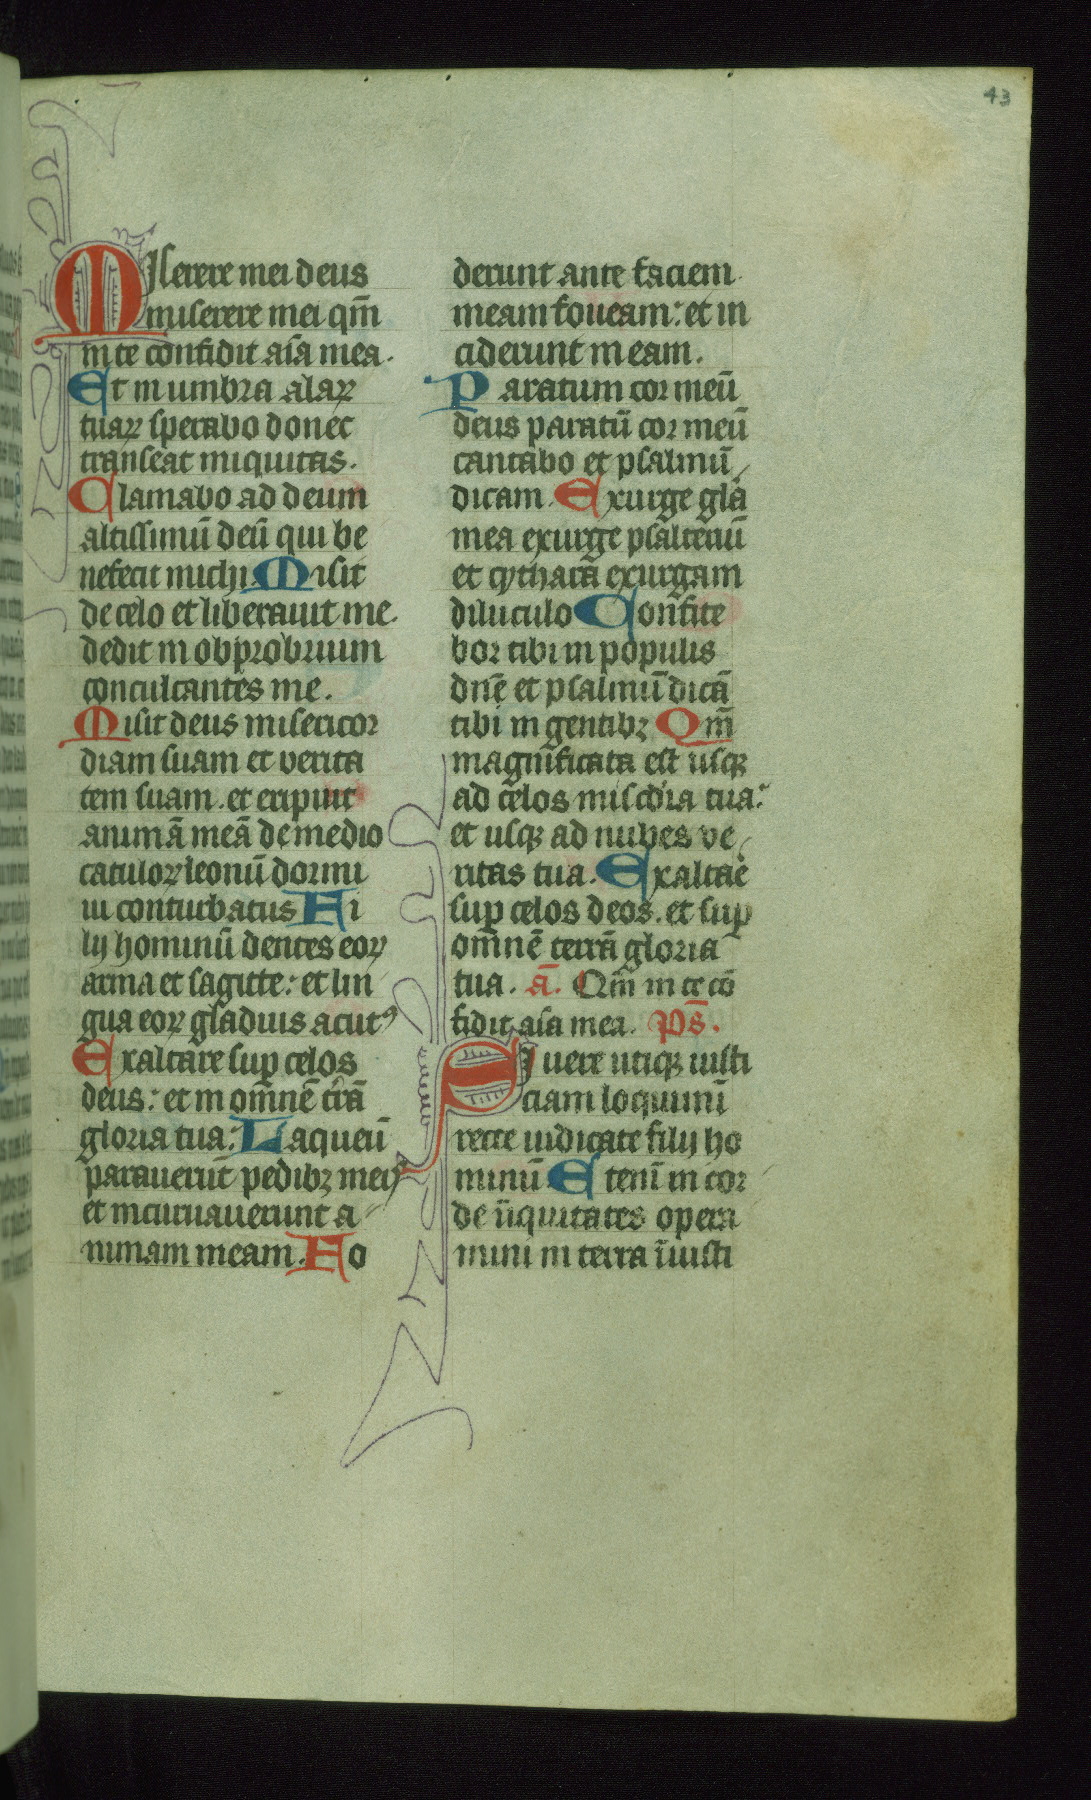 43
Miserere mei deus
miserere mei qm̄
in te confidit aīa mea.
Et in umbra alaꝝ
tuaꝝ sperabo donec
transeat iniquitas.
Clamabo ad deum
altissimū deū qui be
nefecit michi. Misit
de celo et liberavit me.
dedit in obprobrium
conculcantes me.
Misit deus misericor
diam suam et verita
tem suam. et eripuit
animā meā de medio
catuloꝝ leonū dormi
ui conturbatus Fi
lij hominū dentes eoꝝ
arma et sagitte: et lin
gua eoꝝ gladius acutꝰ
Exaltare suꝑ celos
deus: et in omnē trā
gloria tua: Laqueū
parauerūt pedibꝫ meis
et incuruauerunt a
nimam meam. Fo
derunt ante faciem
meam foueam: et in
ciderunt in eam.
Paratum cor meū
deus paratū cor meū
cantabo et psalmū
dicam. Exurge glā
mea exurge psalteriū
et cytharā exurgam
diluculo Confite
bor tibi in populis
dn̄e et psalmū dicā
tibi in gentibꝫ Qm̄
magnificata est usqꝫ
ad celos misc̄dia tua:
et usqꝫ ad nubes ve
ritas tua. Exaltare
suꝑ celos deos. et suꝑ
omnē terrā gloria
tua. aᷓ. Qm̄ in te cō
fidit aīa mea. Ps̄.
Si uere utiqꝫ iusti
ciam loquimī
recte iudicate filij ho
minū Etenī in cor
de īiquitates opera
mini in terra īiusti